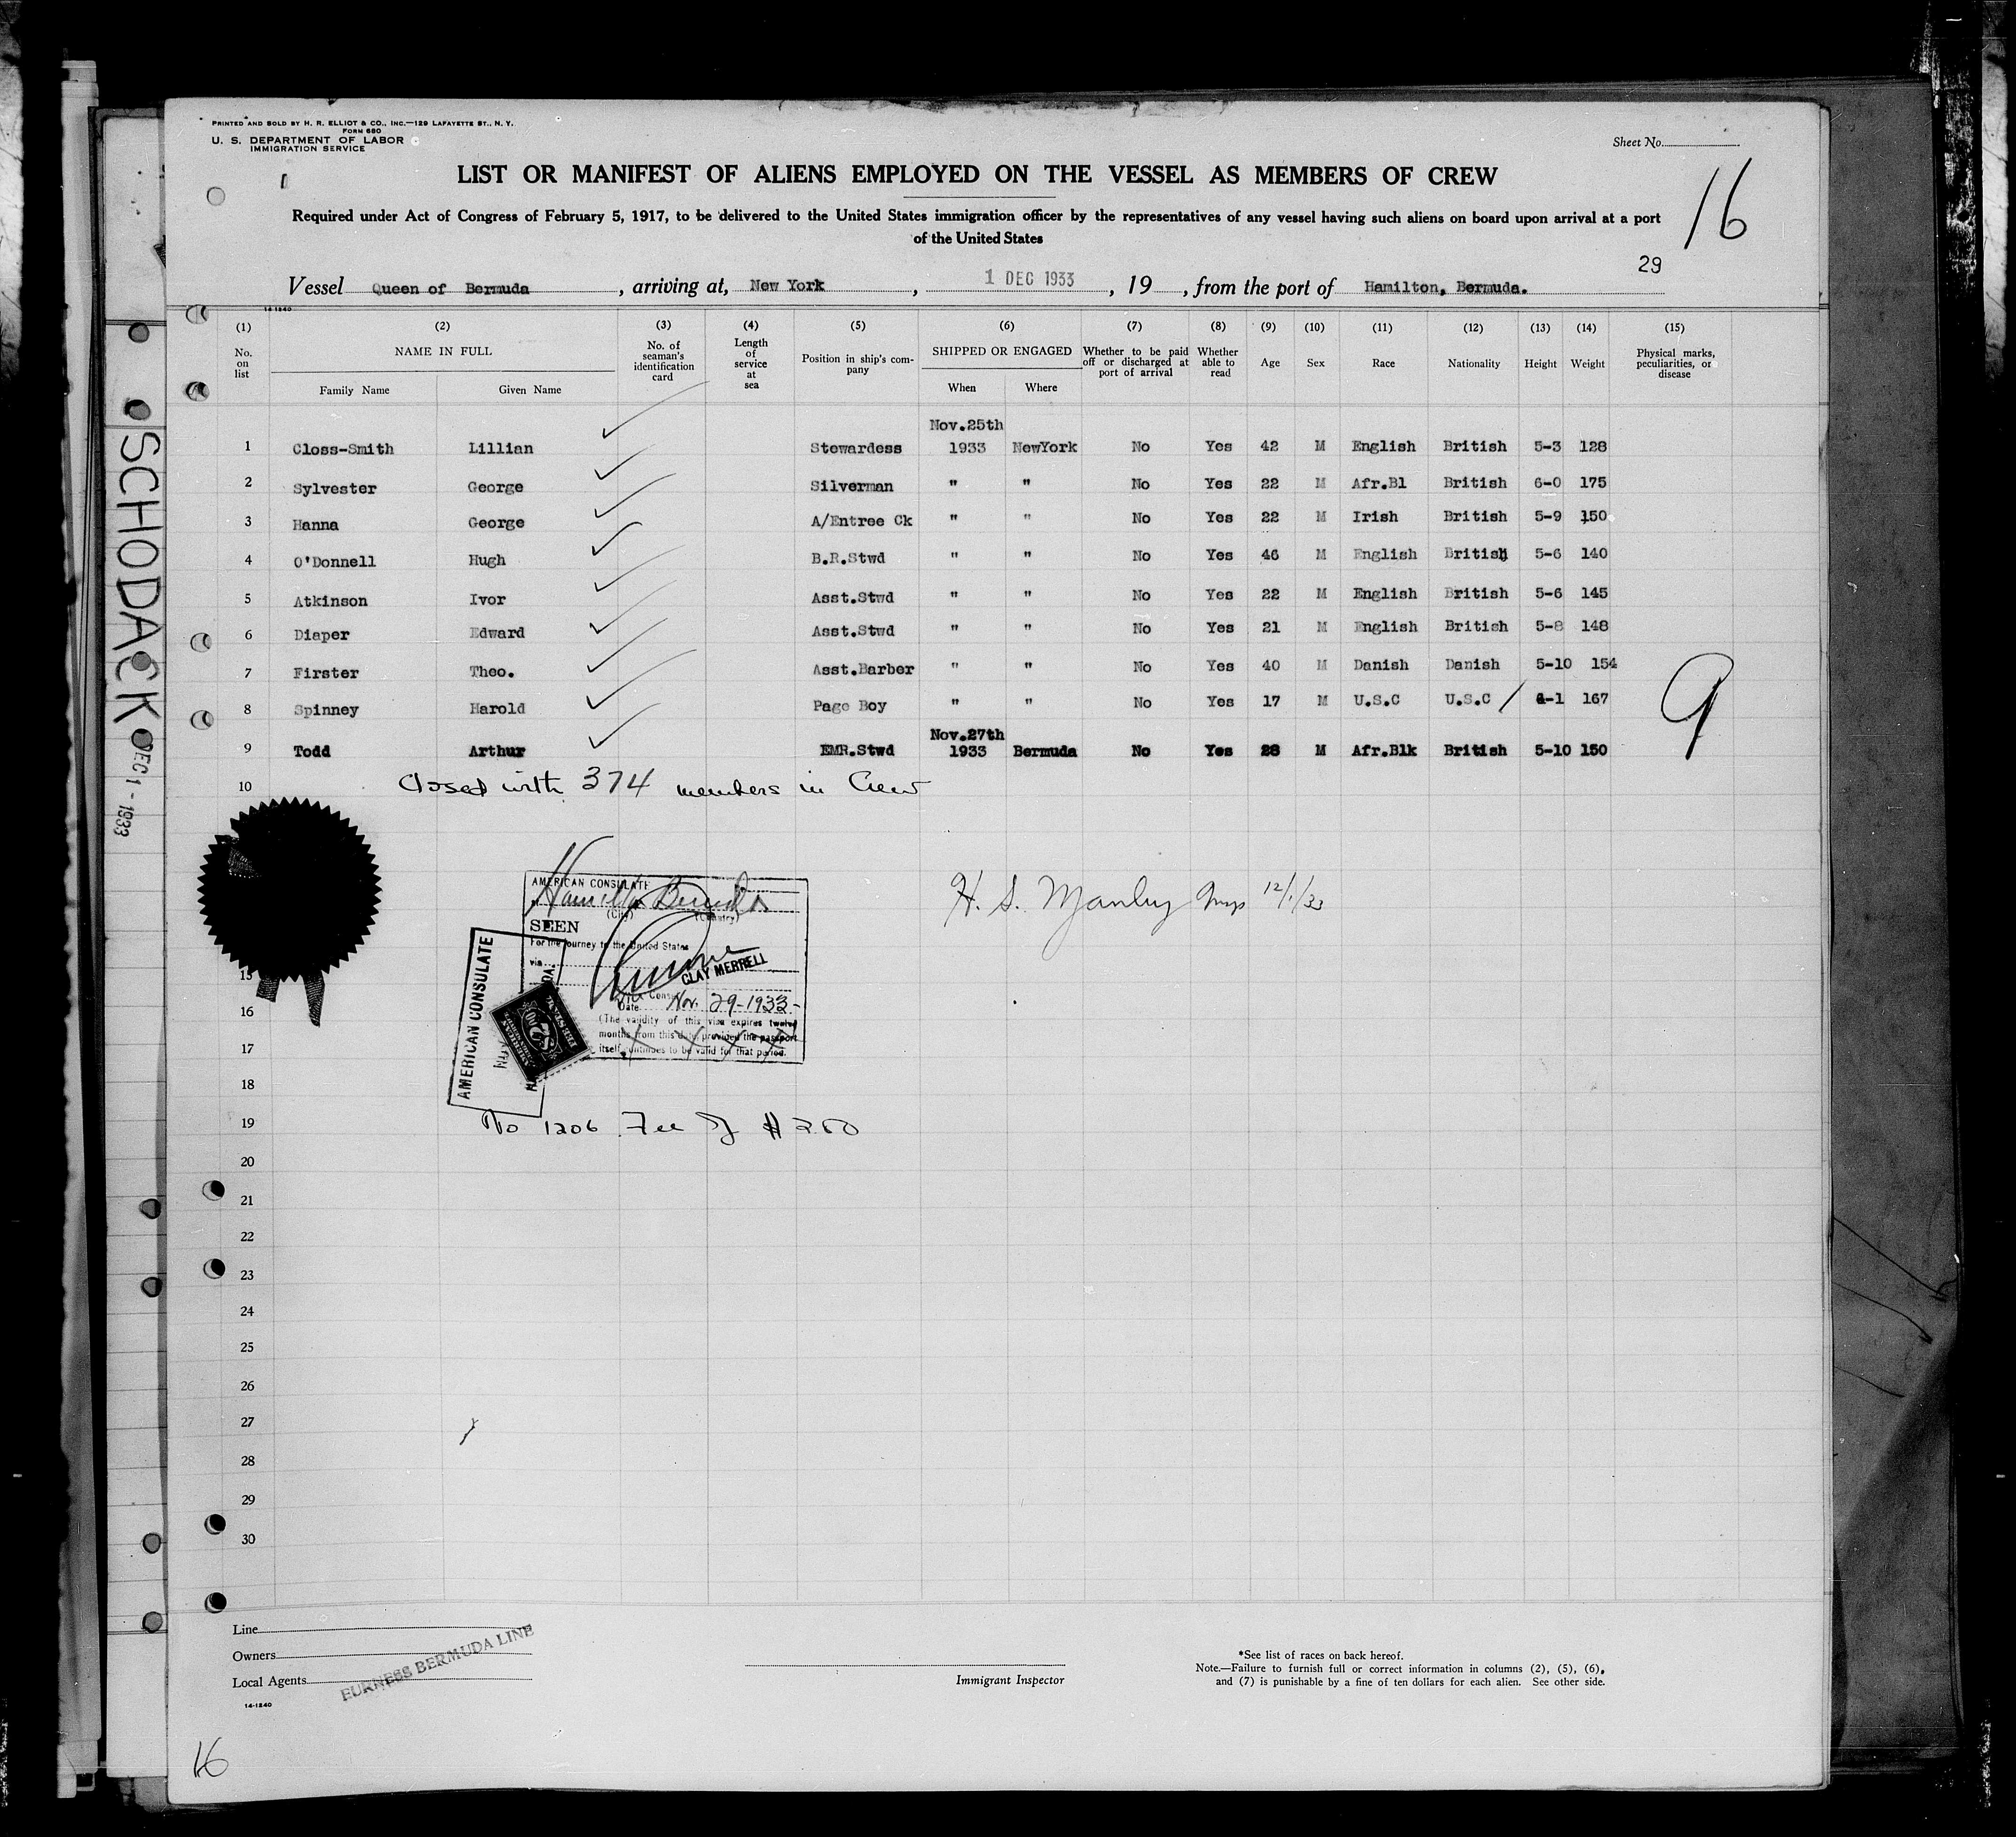 PRINTED AND SOLD BY H. R. ELLIOT & CO., INC.—129 LAFAYETTE ST., N. Y.
FORM 680
U. S. DEPARTMENT OF LABOR
IMMIGRATION SERVICE
Sheet No.
16
LIST OR MANIFEST OF ALIENS EMPLOYED ON THE VESSEL AS MEMBERS OF CREW
Required under Act of Congress of February 5, 1917, to be delivered to the United States immigration officer by the representatives of any vessel having such aliens on board upon arrival at a port
of the United States
29
Vessel Queen of Bermuda, arriving at, New York, 1 DEC 1933, 19, from the port of Hamilton, Bermuda.
14-1240
(1) (2) (3) (4) (5) (6) (7) (8) (9) (10) (11) (12) (13) (14) (15)
No. on list NAME IN FULL Family Name Given Name No. of seaman's identification card Length of service at sea Position in ship's company SHIPPED OR ENGAGED When Where Whether to be paid off or discharged at port of arrival Whether able to read Age Sex Race Nationality Height Weight Physical marks, peculiarities, or disease
Nov.25th
1 Closs-Smith Lillian Stewardess 1933 NewYork No Yes 42 M English British 5-3 128
2 Sylvester George Silverman " " No Yes 22 M Afr.Bl British 6-0 175
3 Hanna George A/Entree Ck " " No Yes 22 M Irish British 5-9 150
4 O'Donnell Hugh B.R.Stwd " " No Yes 46 M English British 5-6 140
5 Atkinson Ivor Asst.Stwd " " No Yes 22 M English British 5-6 145
6 Diaper Edward Asst.Stwd " " No Yes 21 M English British 5-8 148
7 Firster Theo. Asst.Barber " " No Yes 40 M Danish Danish 5-10 154
8 Spinney Harold Page Boy " " No Yes 17 M U.S.C U.S.C / 6-1 167
9
Nov.27th
9 Todd Arthur EMR.Stwd 1933 Bermuda No Yes 28 M Afr.Blk British 5-10 150
10 Closed with 374 members in Crew
AMERICAN CONSULATE
Hamilton Bermuda
(City) (Country)
SEEN
For the journey to the United States
via
CLAY MERRELL
Vice Consul
Date Nov. 29-1933-
(The validity of this visa expires twelve
months from this date, provided the passport
itself continues to be valid for that period.
AMERICAN CONSULATE
H. S. Manley Insp 12/1/33
No 1206 Fee of $2.00
15
16
17
18
19
20
21
22
23
24
25
26
27
28
29
30
Line
Owners
Local Agents
FURNESS BERMUDA LINE
14-1240
Immigrant Inspector
*See list of races on back hereof.
Note.—Failure to furnish full or correct information in columns (2), (5), (6),
and (7) is punishable by a fine of ten dollars for each alien. See other side.
16
SCHODACK
DEC 1 - 1933